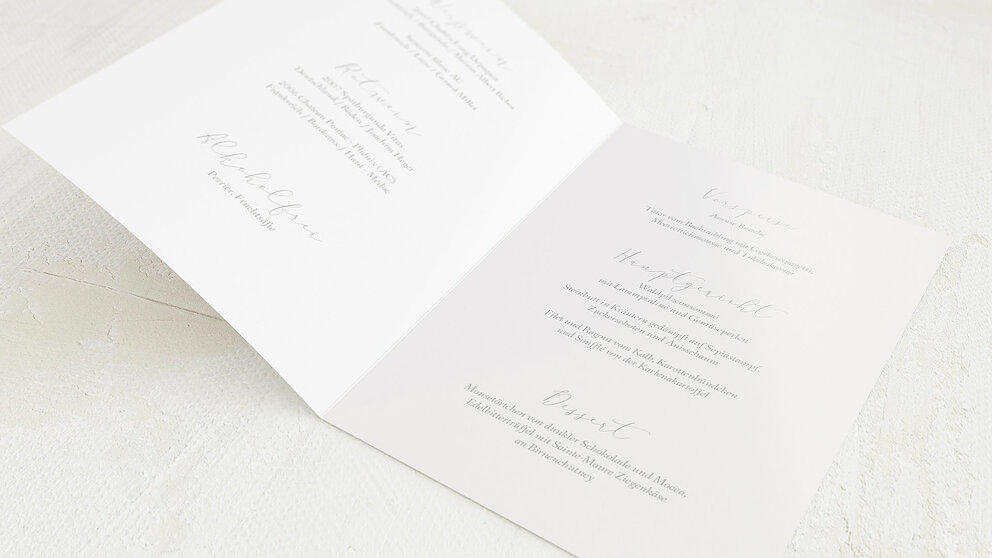 Weißwein
Sancerre Blanc AC
Frankreich / Loire / Gerard Millet
Rotwein
2007 Spätburgunda Virus
Deutschland / Baden / Joachim Heger
2006 Chateau Poniac - Phénix (AC)
Frankreich / Bordeaux / Haut - Médoc
Alkoholfrei
Perrier, Fruchtsäfte
Vorspeise
Amuse Bouche
Tatar vom Bachsaibling mit Gurkenspagetti,
Meerrettichmousse und Tobikokaviar
Hauptgericht
Waldpilzconsommé
mit Lammpraline und Gemüseperlen
Steinbutt in Kräutern gedämpft auf Sepiastampf,
Zuckerschoten und Anisschaum
Filet und Ragout vom Kalb, Karottenbündchen
und Souffle von der Karlenakartoffel
Dessert
Moussetörtchen von dunkler Schokolade und Mocca,
Edelbittertrüffel mit Sainte-Maure Ziegenkäse
an Birnenchutney